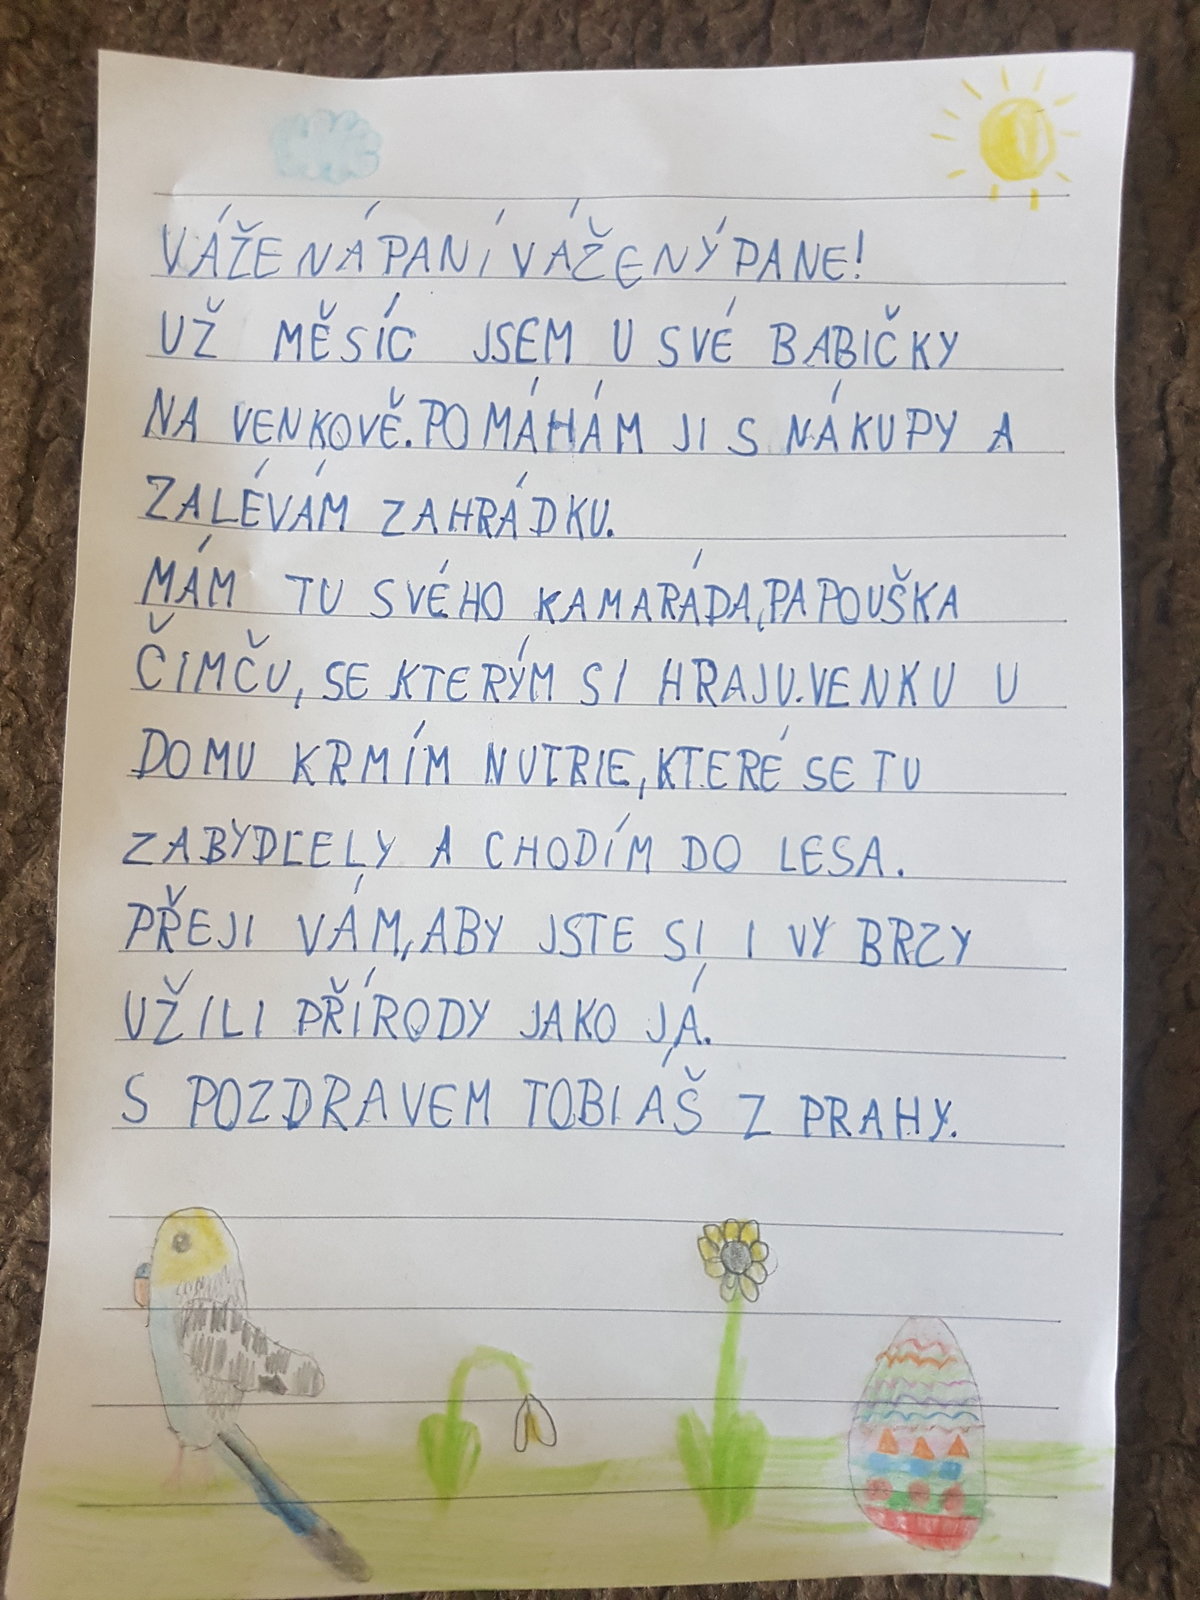 VÁŽENÁ PANÍ VÁŽENÝ PANE!
UŽ MĚSÍC JSEM U SVÉ BABIČKY
NA VENKOVĚ. POMÁHÁM JI S NÁKUPY A
ZALÉVÁM ZAHRÁDKU.
MÁM TU SVÉHO KAMARÁDA, PAPOUŠKA
ČIMČU, SE KTERÝM SI HRAJU. VENKU U
DOMU KRMÍM NUTRIE, KTERÉ SE TU
ZABYDLELY A CHODÍM DO LESA.
PŘEJI VÁM, ABY JSTE SI I VY BRZY
UŽILI PŘÍRODY JAKO JÁ.
S POZDRAVEM TOBIÁŠ Z PRAHY.